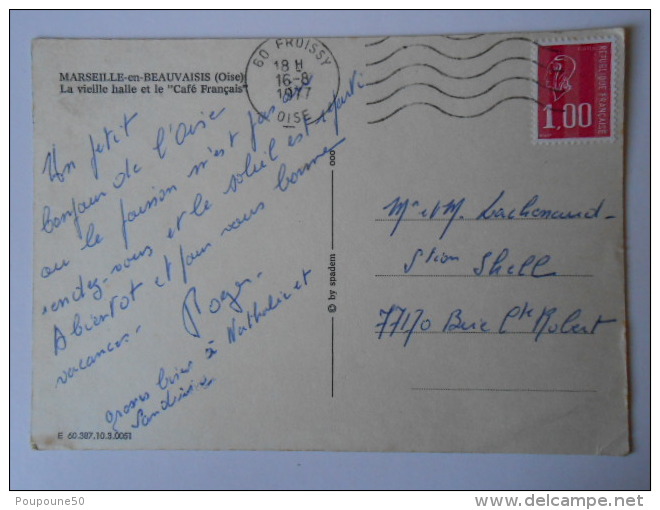 MARSEILLE-en-BEAUVAISIS (Oise)
La vieille halle et le "Café Français"
60 FROISSY
18 H
16-8
1977
OISE
REPUBLIQUE FRANÇAISE
1,00
Un petit
bonjour de l'Oise
ou le poisson n'est pas au
rendez-vous et le soleil est reparti
A bientot et pour vous bonne
vacances.
Roger.
grosses bises à Nathalie et
Sandrine
© by spadem
ooo
Mme et M. Lachenaud
Stion Shell
77170 Brie Cte Robert
E 60.387.10.3.0051
Poupoune50
delcampe.net